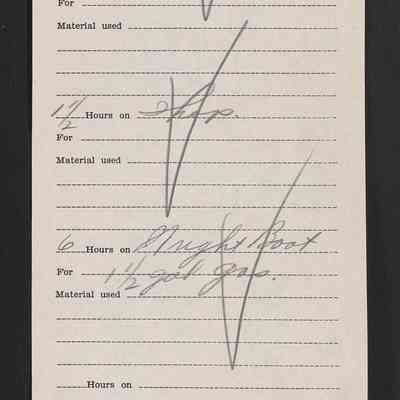 For
Material used
1 1/2 Hours on Shop.
For
Material used
6 Hours on Wright Boat
For 1 1/2 gal gas.
Material used
Hours on